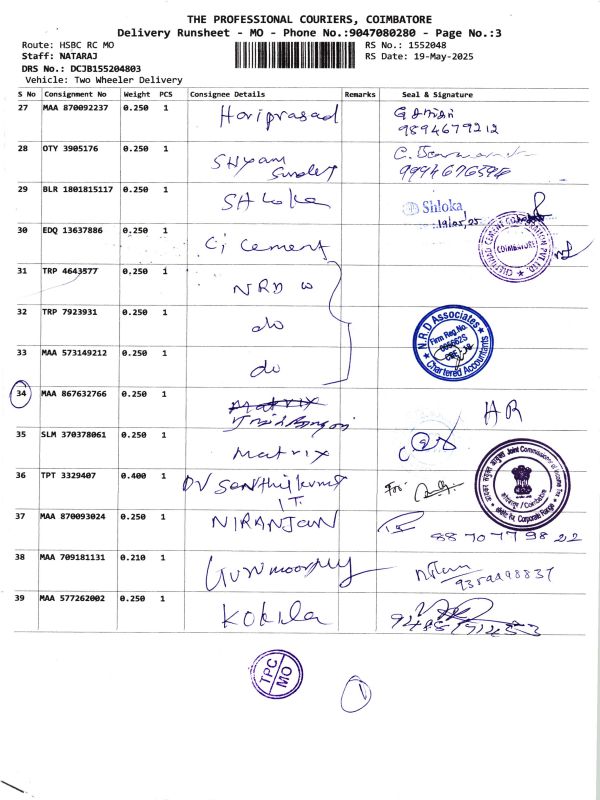 THE PROFESSIONAL COURIERS, COIMBATORE
Delivery Runsheet - MO - Phone No.:9047080280 - Page No.:3
Route: HSBC RC MO RS No.: 1552048
Staff: NATARAJ RS Date: 19-May-2025
DRS No.: DCJB155204803
Vehicle: Two Wheeler Delivery
S No Consignment No Weight PCS Consignee Details Remarks Seal & Signature
27 MAA 870092237 0.250 1 Hariprasad
9894679212
28 OTY 3905176 0.250 1 Shyam
Sunder
29 BLR 1801815117 0.250 1 Shloka Shloka
19/05/25
30 EDQ 13637886 0.250 1 Ci Cement COIMBATORE
31 TRP 4643577 0.250 1 NRD
32 TRP 7923931 0.250 1 do N.R.D Associates
Firm Reg.No.
Chartered Accountants
33 MAA 573149212 0.250 1 do
34 MAA 867632766 0.250 1 Matrix HR
35 SLM 370378061 0.250 1 Matrix
36 TPT 3329407 0.400 1 DV Senthilkumar For
I.T. Coimbatore
Corporate Range
37 MAA 870093024 0.250 1 NIRANJAN 8870779822
38 MAA 709181131 0.210 1 Gurumoorthy
39 MAA 577262002 0.250 1 Kokila
TPC
MO
1